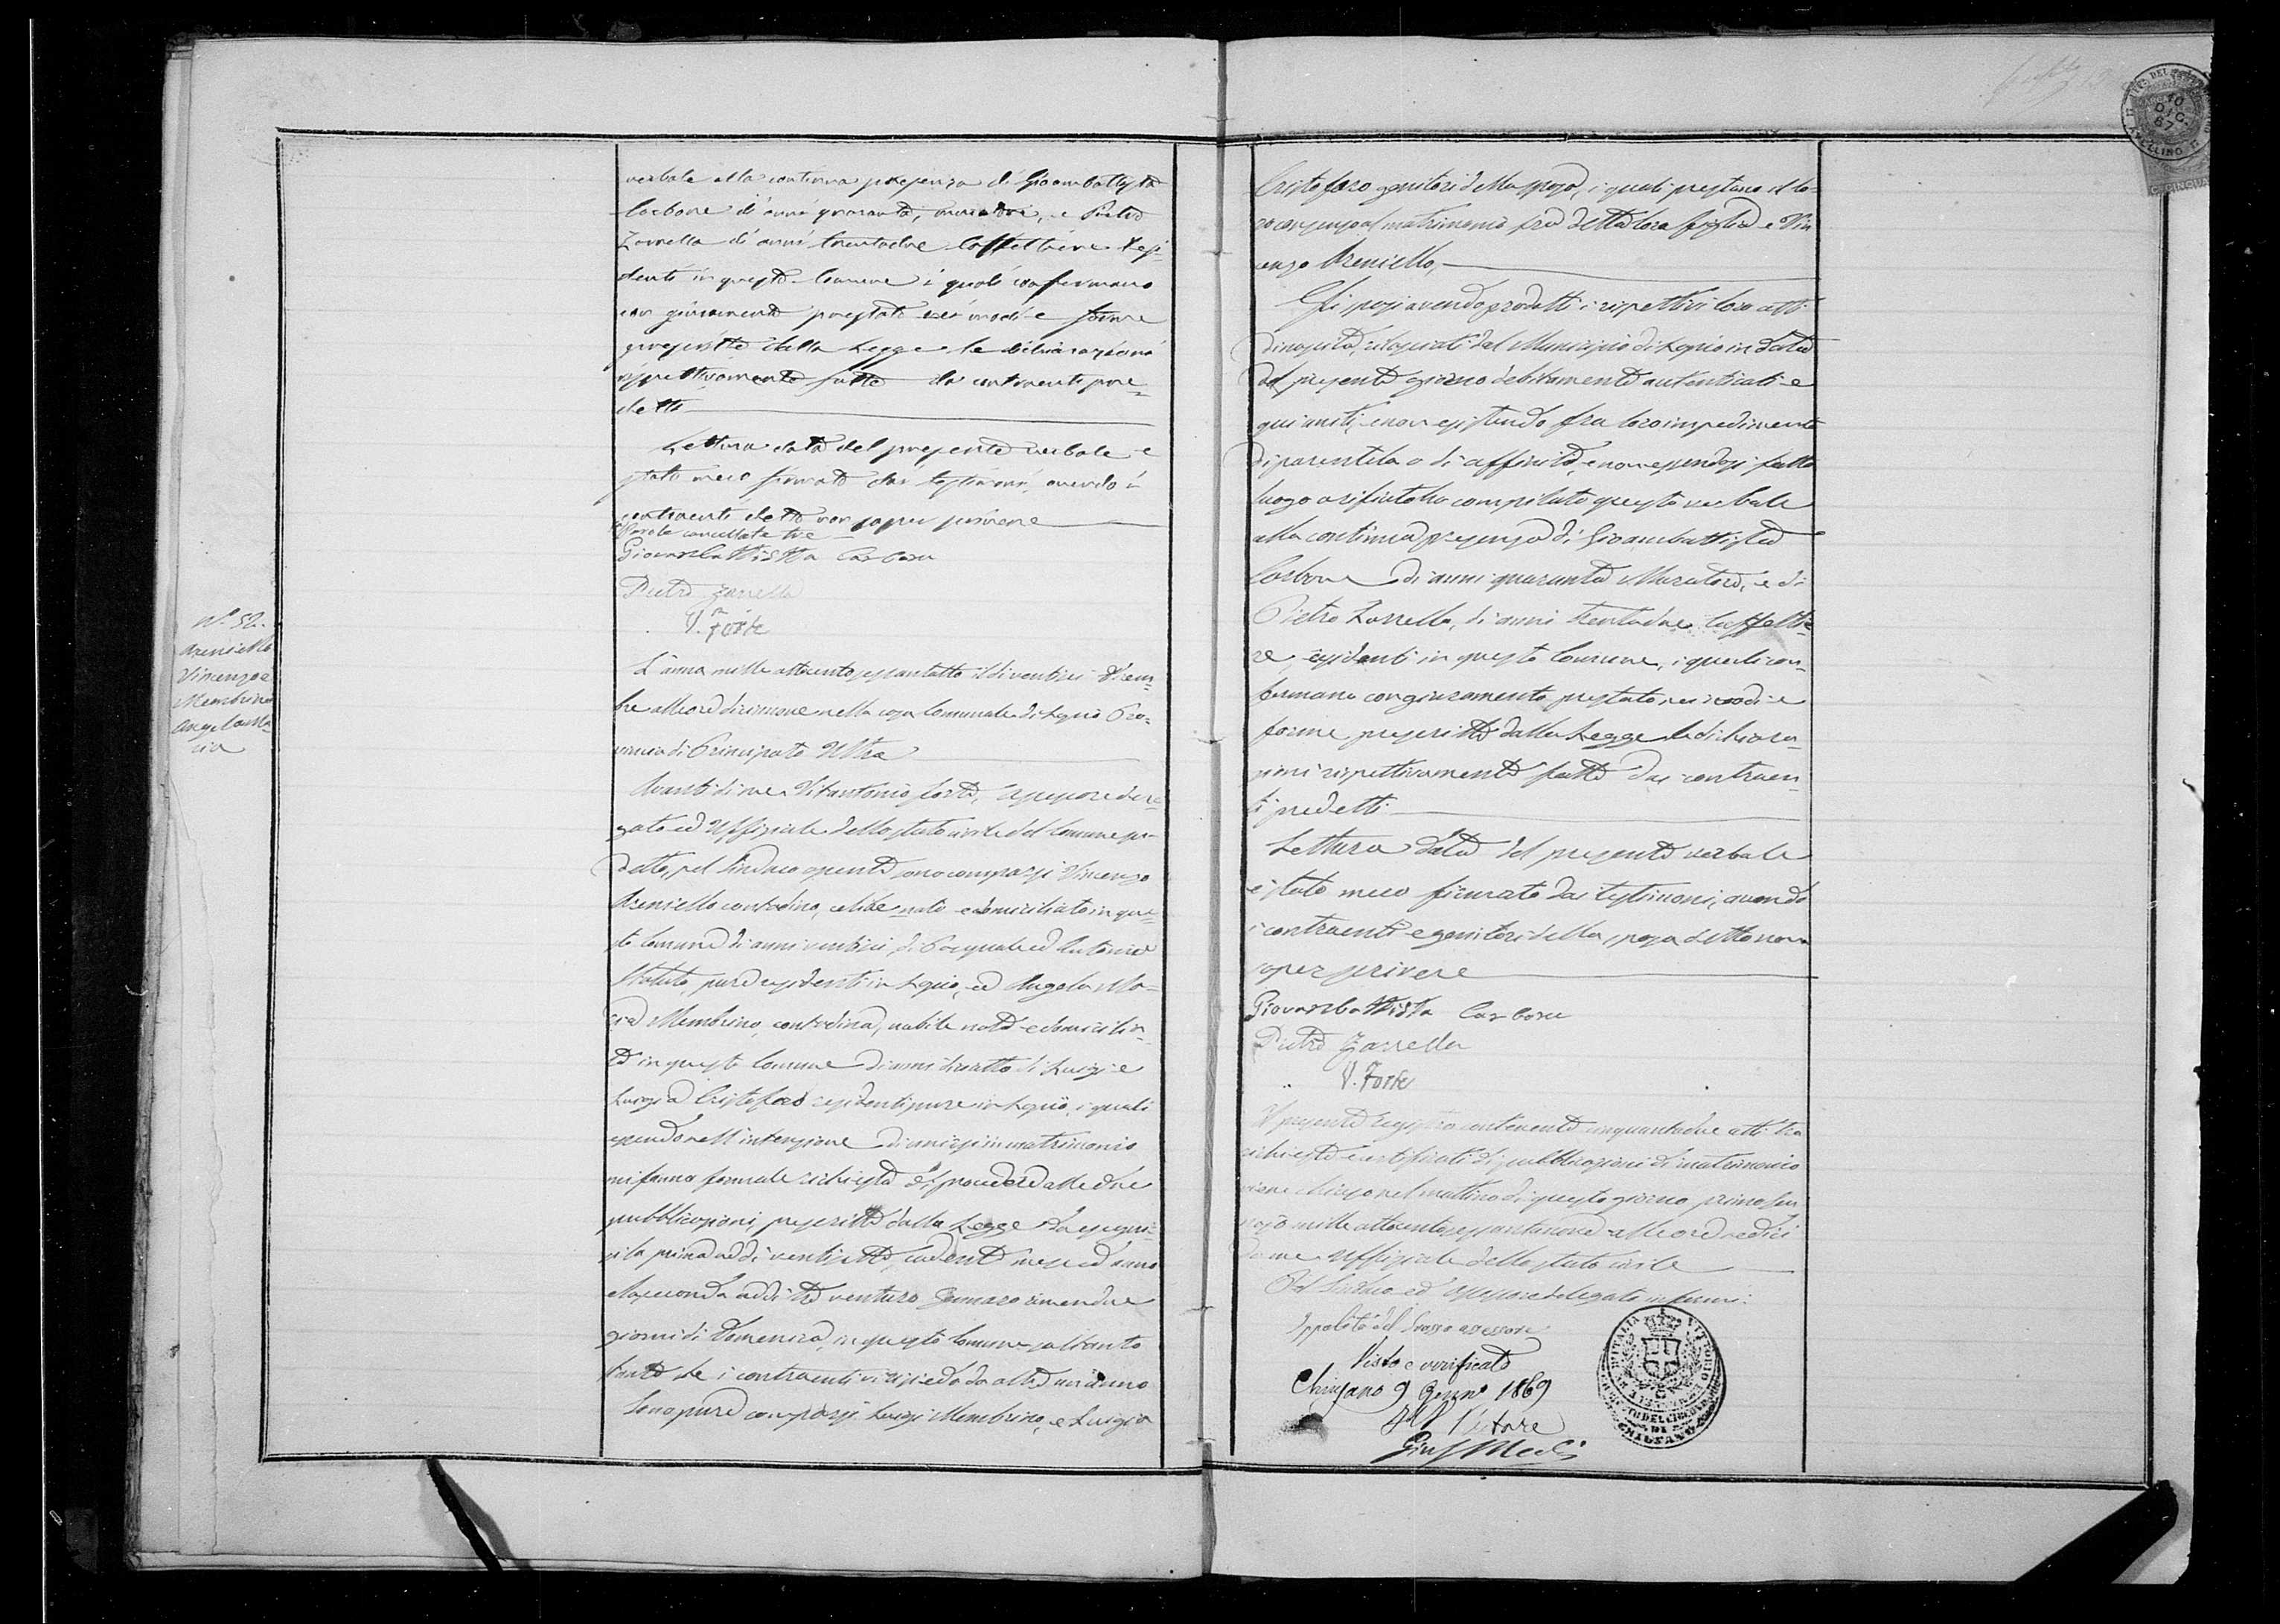 verbale alla continua presenza di Gioambattista
Carbone di anni quaranta, muratore, e Pietro
Zarrella di anni trentadue Caffettiere resi-
denti in questo Comune i quali confermano
con giuramento prestato nei modi e forme
prescritte dalla Legge le dichiarazioni
rispettivamente fatte da contraenti pre-
detti
Lettura data del presente verbale è
stato meco firmato dai testimoni, avendo i
contraenti detto non saper scrivere
Parole cancellate tre
Giovanbattista Carbone
Pietro Zarrella
V. Forte
N.° 52.
Areniello
Vincenzo e
Membrino
Angelama-
ria
L'anno mille ottocento sessantotto il di ventisei Decem-
bre alle ore diecinove nella casa Comunale di Lapio Pro-
vincia di Principato Ultra
Avanti di me Vitantonio Forte, Assessore dele-
gato ed Uffiziale dello stato civile del Comune su-
detto, pel Sindaco assente sono comparsi Vincenzo
Areniello contadino, celibe nato e domiciliato in que-
sto Comune di anni ventisei, di Pasquale ed Antonia
pure residenti in Lapio, ed Angela Ma-
ria Membrino, contadina, nubile nata e domicilia-
ta in questo Comune di anni diciotto di Luigi e
Luigia Cristofaro residenti pure in Lapio, i quali
essendo nell'intenzione di unirsi in matrimonio
mi fanno formale richiesta di procedere alle due
pubblicazioni prescritte dalla Legge da eseguir-
si la prima addi ventisette cadente mese ed anno
e la seconda addi tre venturo Gennaro amendue
giorni di Domenica, in questo Comune soltanto
stante che i contraenti vi risiedono da oltre un anno
Sono pure comparsi Luigi Membrino, e Luigia
Cristofaro genitori della sposa, i quali prestano il lo-
ro consenso al matrimonio fra detta loro figlia e Vin
cenzo Areniello,
Gli sposi avendo prodotti i rispettivi loro atti
di nascita, rilasciati dal Municipio di Lapio in data
del presente giorno debitamente autenticati e
qui uniti, e non esistendo fra loro impedimento
di parentela o di affinità, e non essendosi fatto
luogo a rifiuto ho compilato questo verbale
alla continua presenza di Gioambattista
Carbone di anni quaranta Muratore, e di
Pietro Zarrella, di anni trentadue Caffettie-
re residenti in questo Comune, i quali con-
fermano con giuramento prestato nei modi e
forme prescritte dalla Legge le dichiara-
zioni rispettivamente fatte dai contraen-
ti predetti
Lettura data del presente verbale
è stato meco firmato dai testimoni, avendo
i contraenti e genitori della sposa detto non
saper scrivere
Giovanbattista Carbone
Pietro Zarrella
V. Forte
Il presente registro contenente cinquantadue atti tra
richieste e certificati di pubblicazioni di matrimonio
viene chiuso nel mattino di questo giorno primo Gen
najo mille ottocento sessantanove alle ore sedici
da me Uffiziale dello stato civile
Pel Sindaco ed Assessore delegato infermi:
Ippolito del Grosso assessore
Visto e verificato
Chiusano 9 Genn° 1869
Il Pretore
10
DIC.
67
AVELLINO